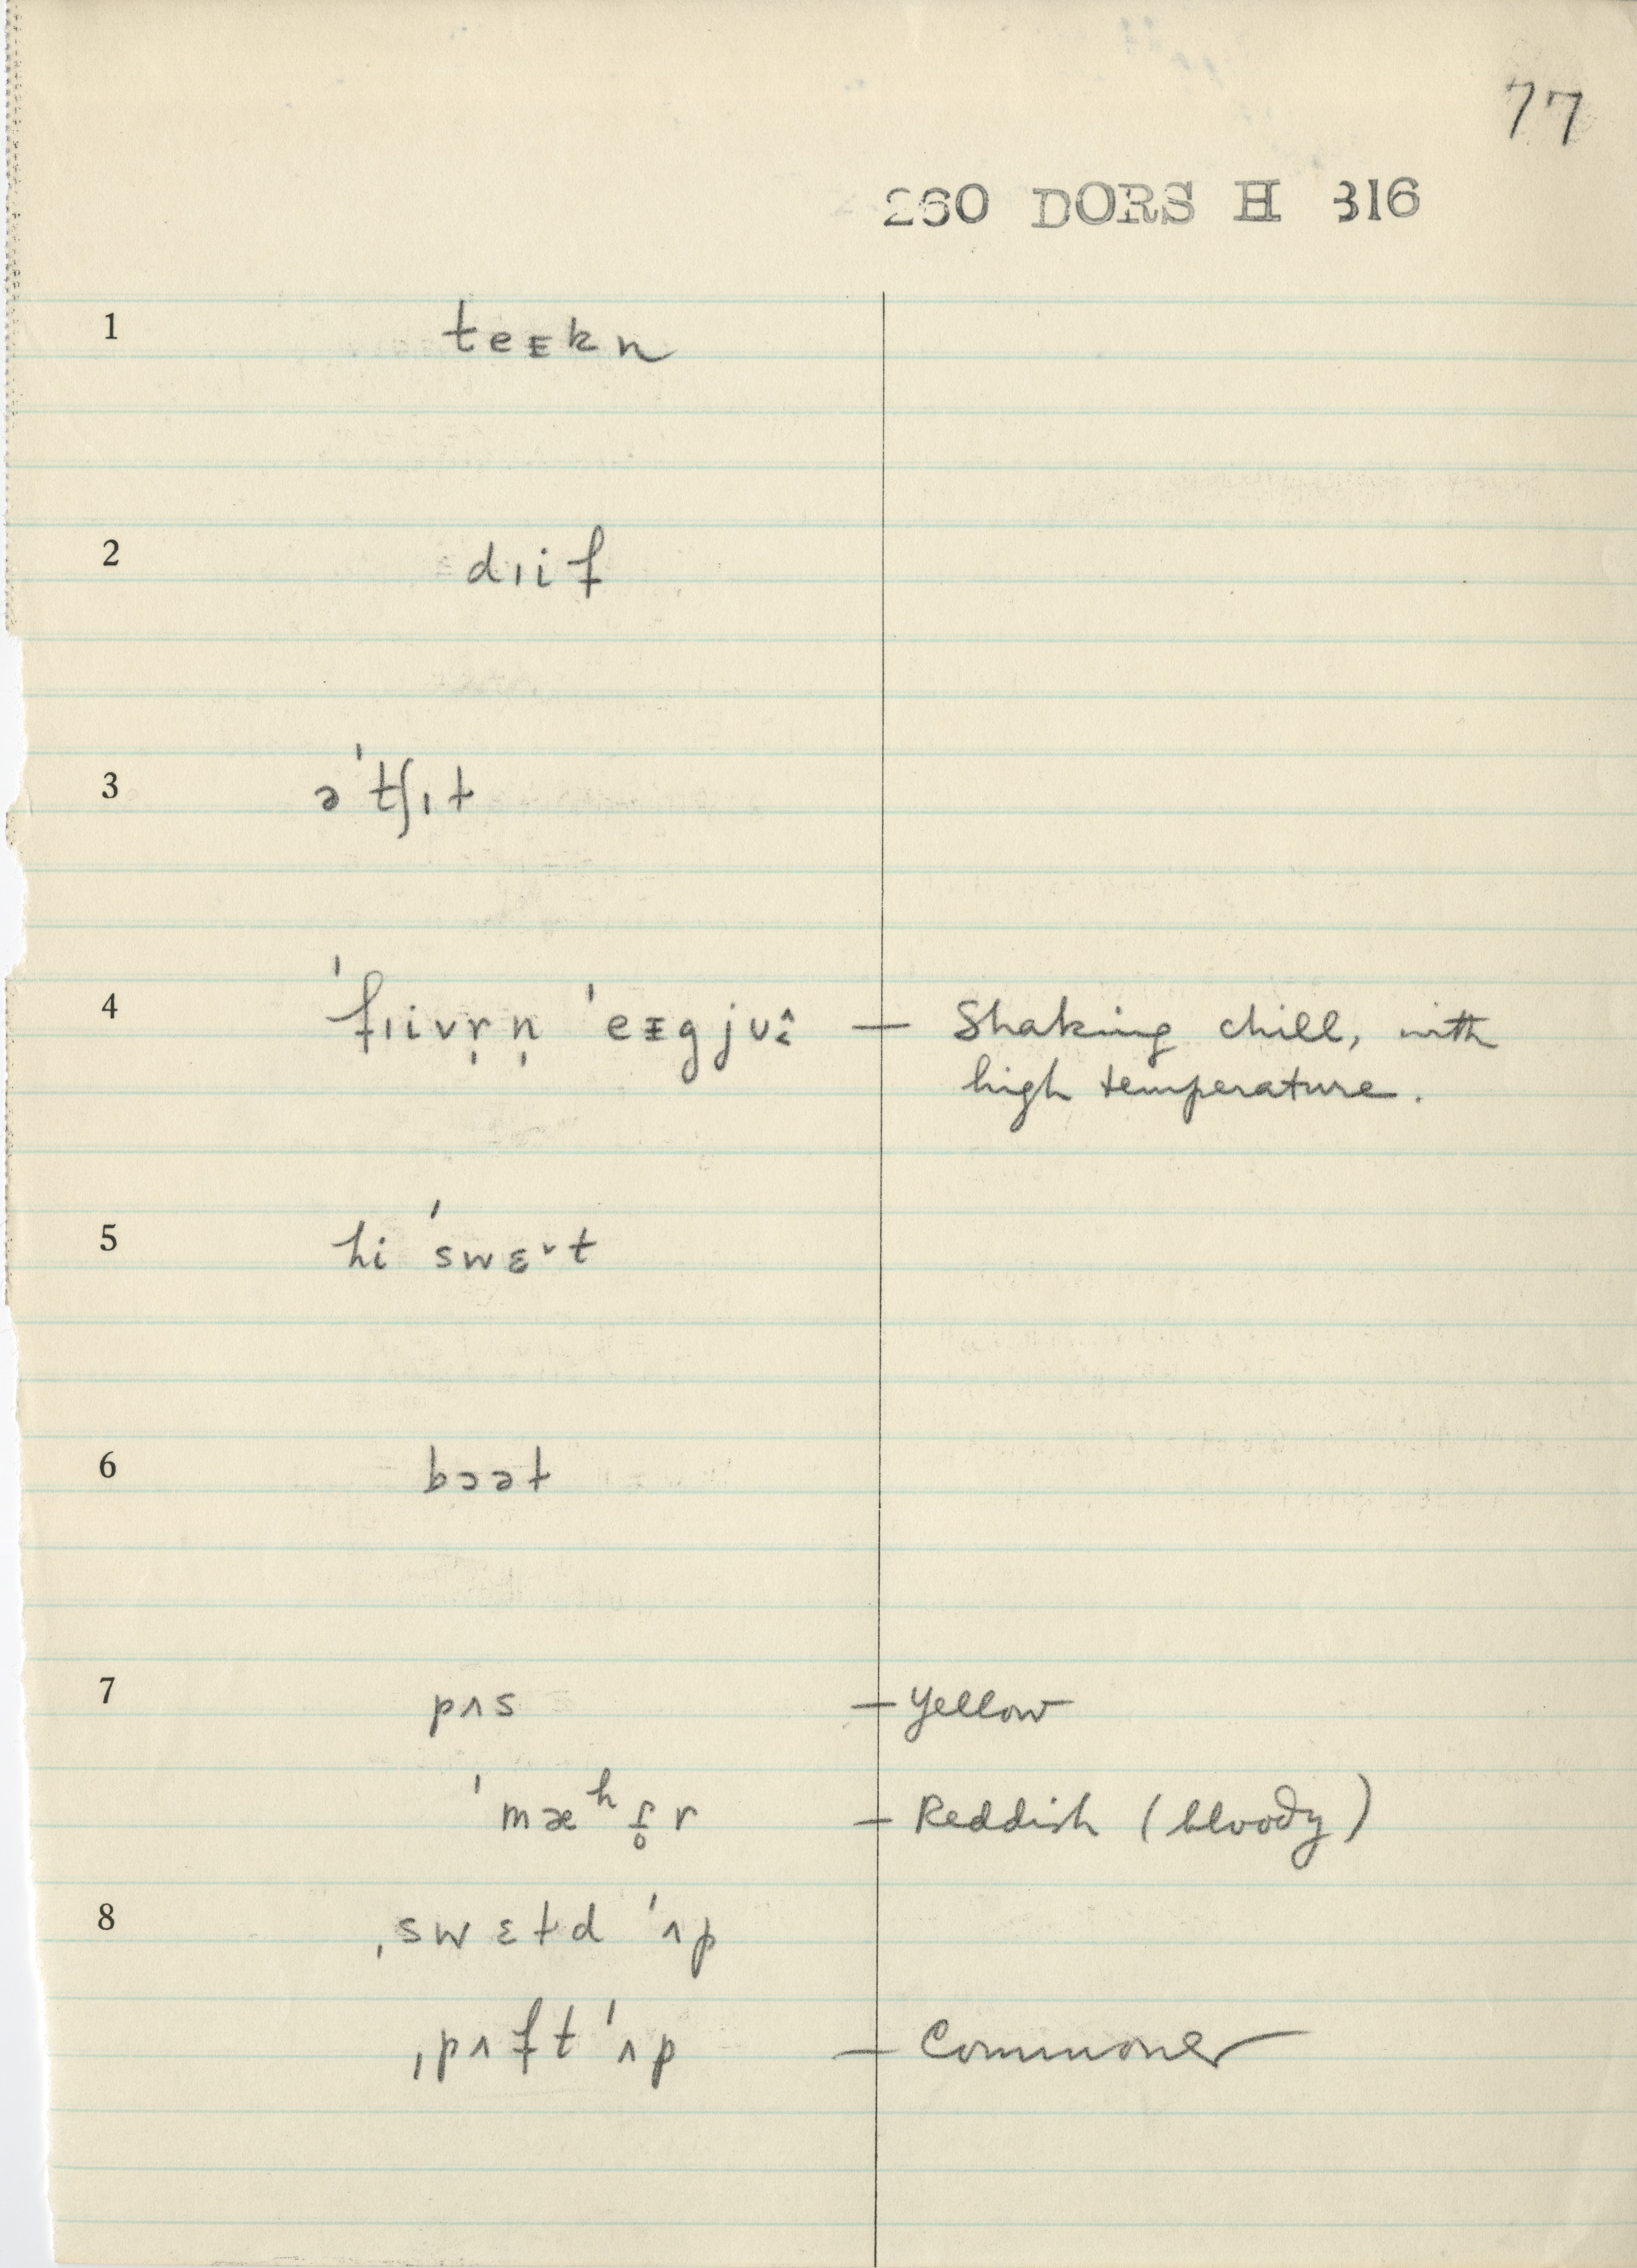 77
260 DORS H 316
1 teᵻkn
2 dɪif
3 ə'tʃɪt
4 'fɪivr̩n̩ 'eᵻgju — Shaking chill, with
high temperature.
5 hi 'swɛ˅t
6 bɔət
7 pʌs — Yellow
'mæʰt̬̥r — Reddish (bloody)
8 ˌswɛtd 'ʌp
ˌpʌft 'ʌp — Commoner